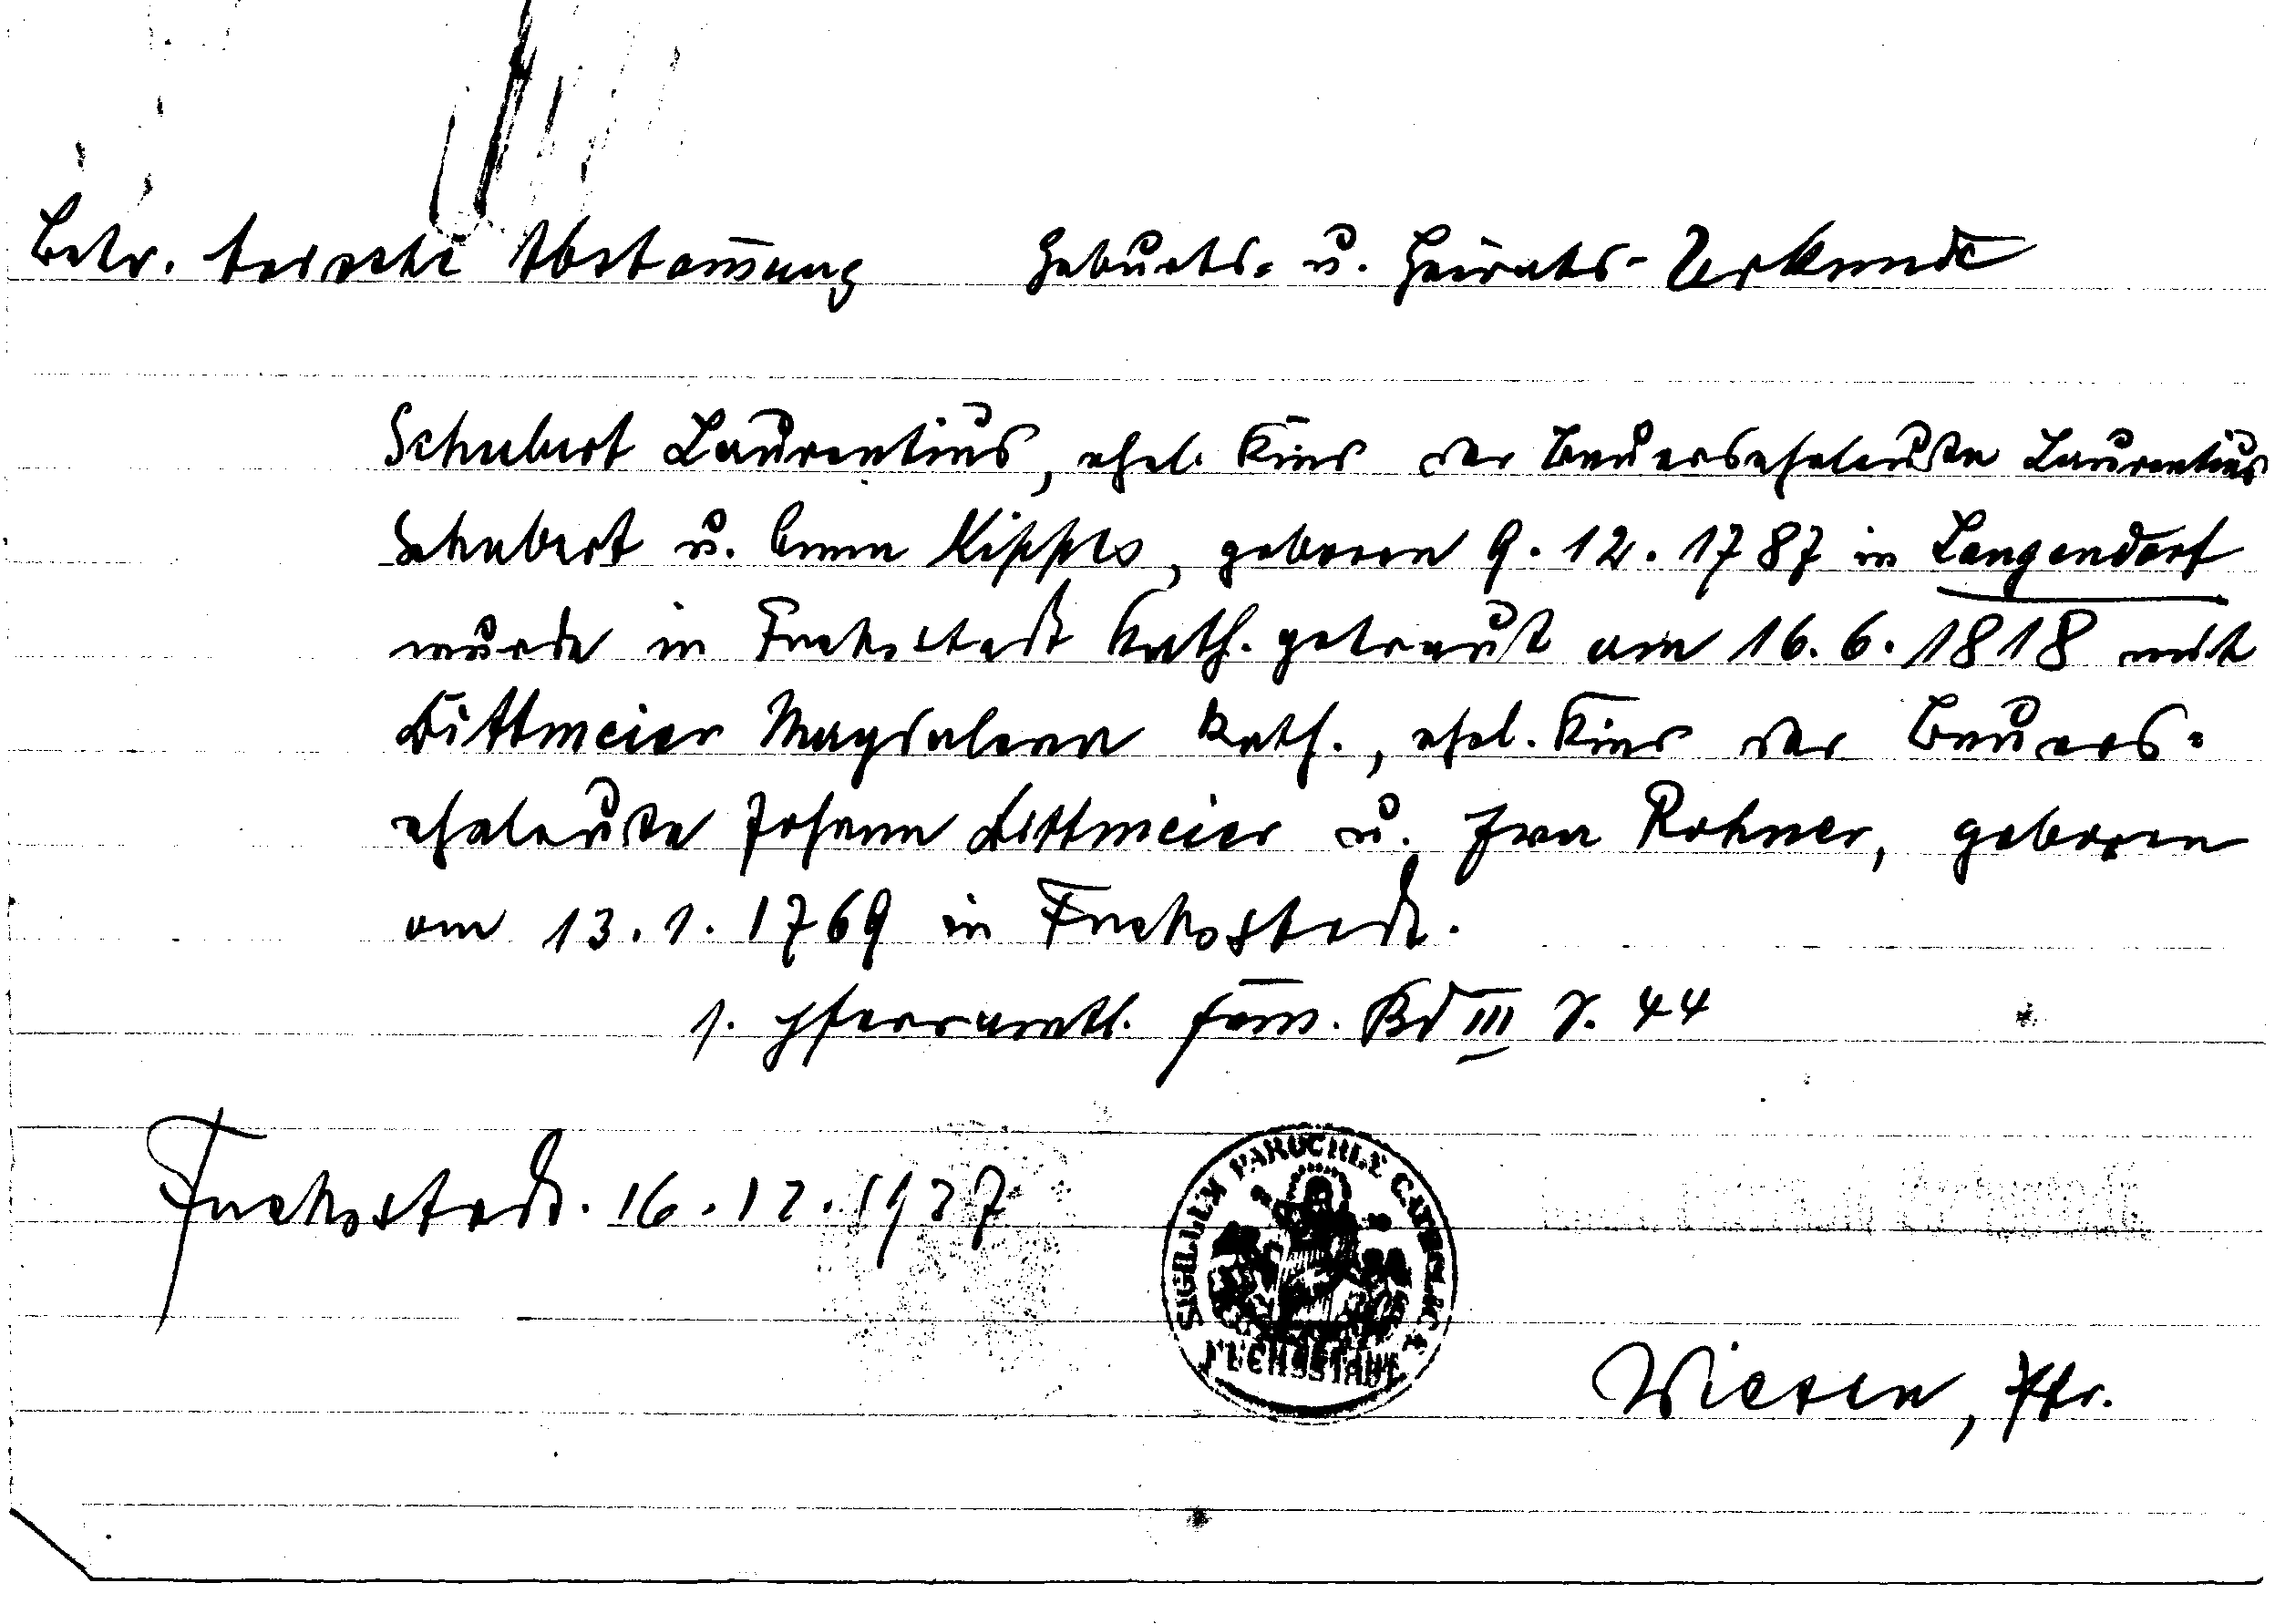 Betr. arische Abstam̅ung Geburts- u. Heirats-Urkunde
Schubert Laurentius, ehel. Kind der Bauerseheleute Laurentius
Schubert u. Anna Kippes, geboren 9.12.1787 in Langendorf
wurde in Fuchsstadt kath. getraut am 16.6.1818 mit
Dittmeier Magdalena kath., ehel. Kind der Bauers-
eheleute Johann Dittmeier u. Eva Rohner, geboren
am 13.1.1769 in Fuchsstadt.
s. pfarramtl. Fam. Bd III S. 44
Fuchsstadt. 16.12.1937
SIGILLUM PAROCHIÆ CATHOLICÆ
FUCHSSTADT
Wiesen, Pfr.